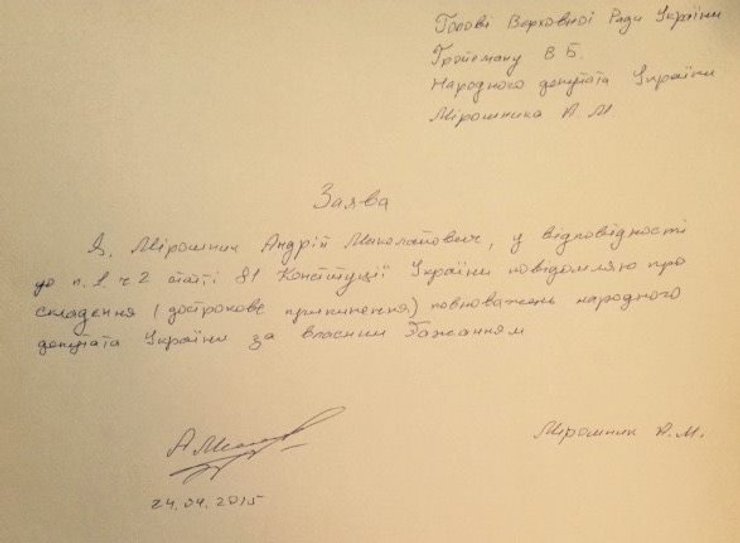 Голові Верховної Ради України
Гройсману В Б.
Народного депутата України
Мірошника А. М.
Заява
Я, Мірошник Андрій Миколайович, у відповідності
до п. 1 ч 2 статі 81 Конституції України повідомляю про
складення (дострокове припинення) повноважень народного
депутата України за власним бажанням
Мірошник А. М.
24.04.2015